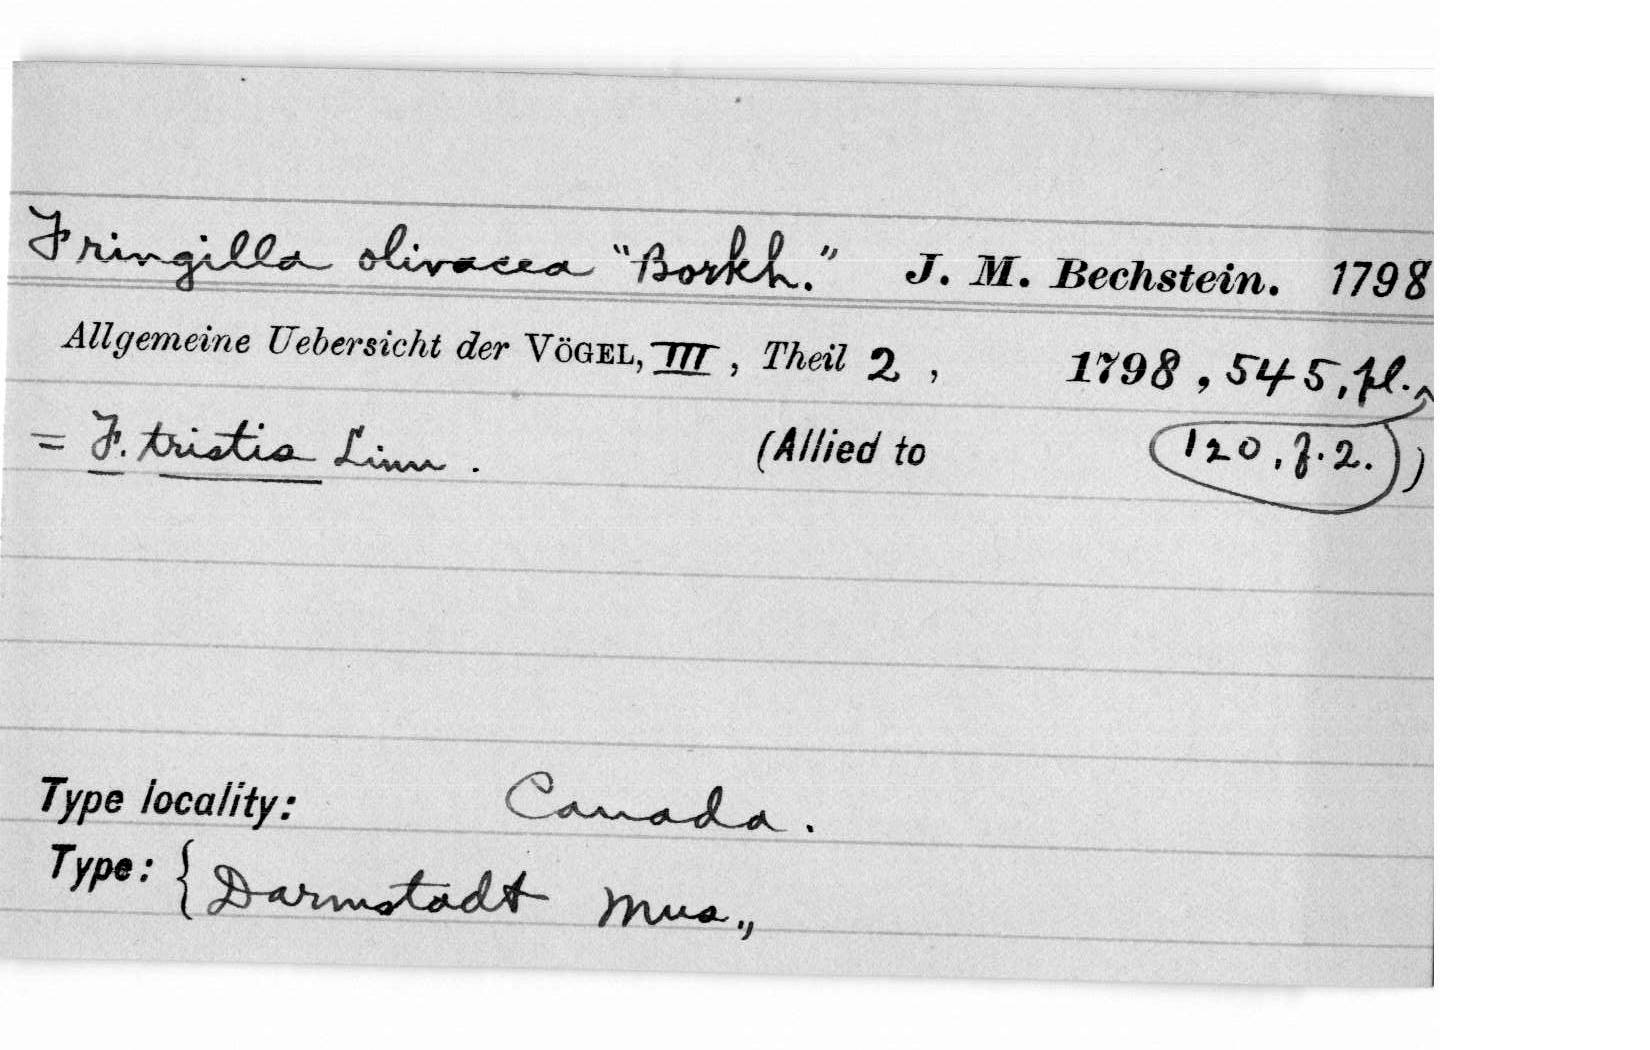 Fringilla olivacea "Borkh." J. M. Bechstein. 1798
Allgemeine Uebersicht der VÖGEL, III, Theil 2, 1798, 545, pl.
= F. tristis Linn. (Allied to 120, f. 2.)
Type locality: Canada.
Type: { Darmstadt Mus.,